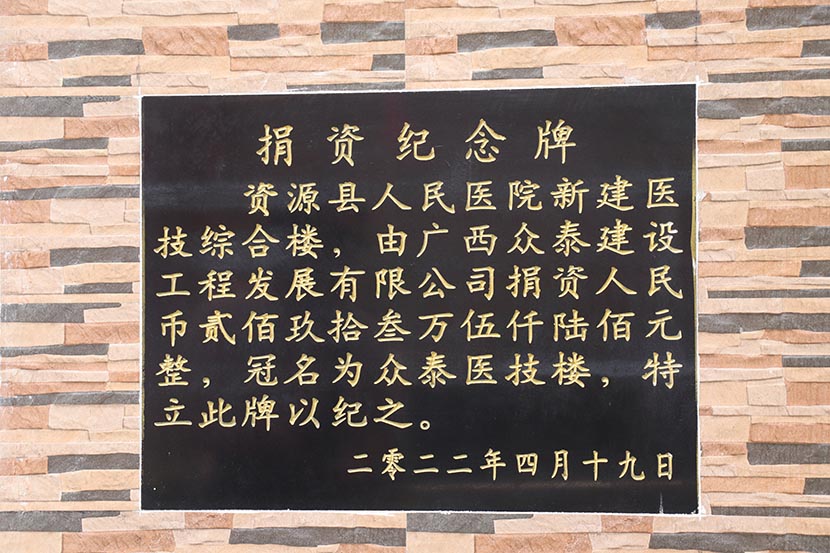 捐资纪念牌
资源县人民医院新建医
技综合楼，由广西众泰建设
工程发展有限公司捐资人民
币贰佰玖拾叁万伍仟陆佰元
整，冠名为众泰医技楼，特
立此牌以纪之。
二零二二年四月十九日